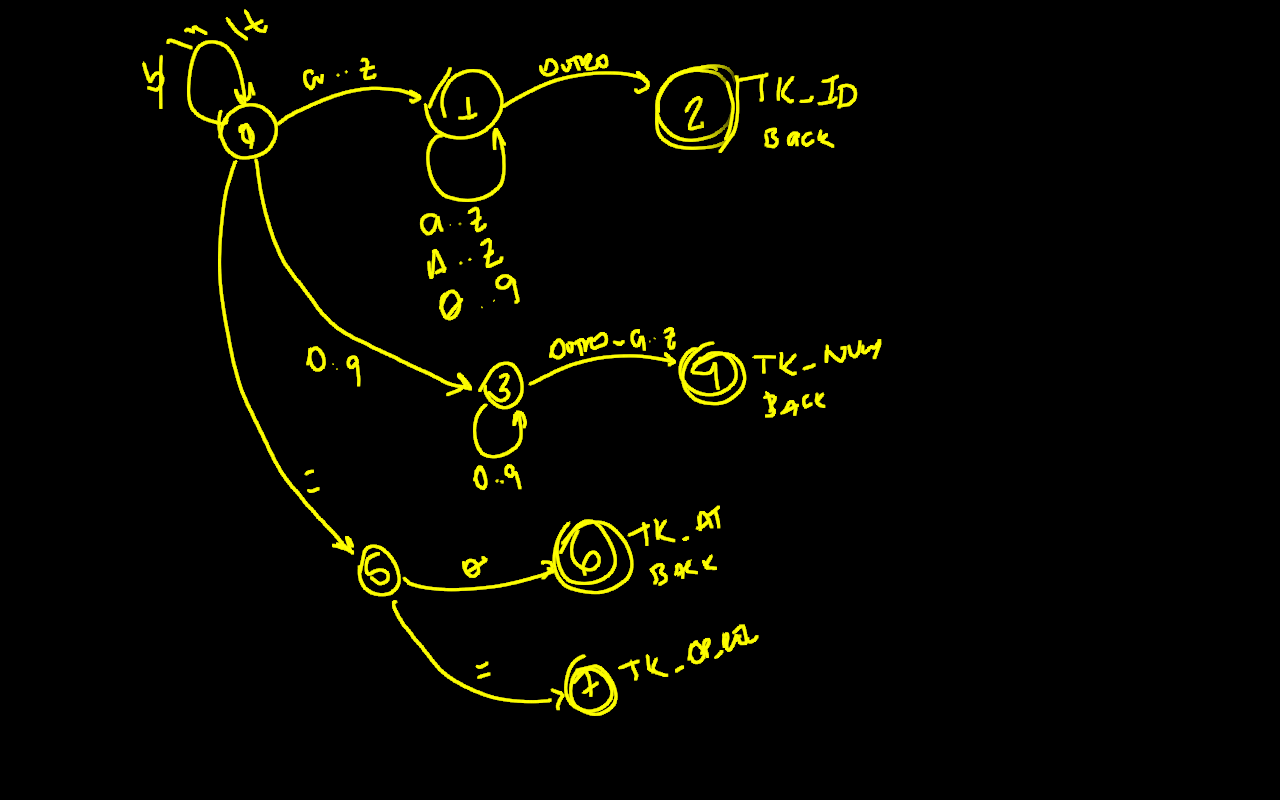 \n \t
a..z
OUTRO
0
1
2
TK_ID
BACK
a..z
A..Z
0..9
0..9
OUTRO - a..z
3
4
TK_NUM
BACK
0..9
=
5
6
TK_AT
BACK
=
7
TK_OP_REL